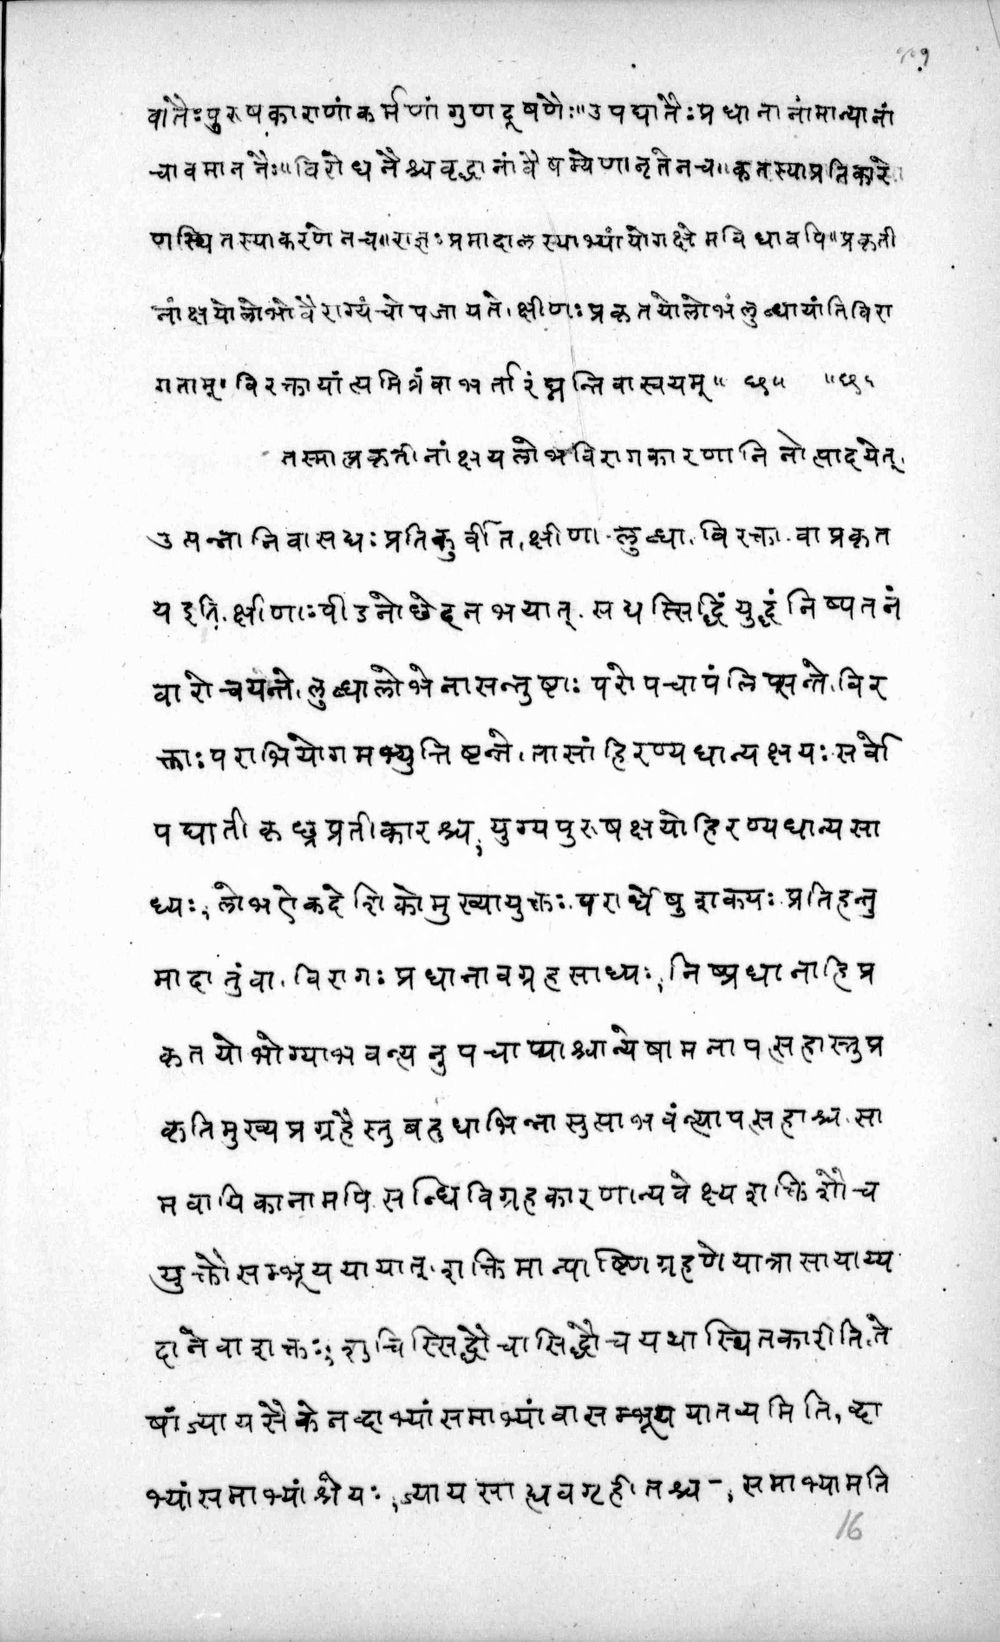 १०१
वातैः पुरुषकाराणां कर्मणां गुणदूषणैः ॥ उपघातैः प्रधानानां मान्यानां
चावमाननैः ॥ विरोधनैश्च वृद्धानां वैषम्येणानृतेन च ॥ कृतस्याप्रतिकारे
ण स्थितस्याकरणेन च ॥ राज्ञः प्रमादालस्याभ्यां योगक्षेमविधावपि ॥ प्रकृती
नां क्षयो लोभो वैराग्यं चोपजायते । क्षीणः प्रकृतयो लोभं लुब्धा यांति विरा
गताम् । विरक्ता यांत्यमित्रं वा भर्तारं घ्नन्ति वा स्वयम् ॥ ६९ ॥ ॥ ६९ ॥
तस्मात्प्रकृतीनां क्षयलोभविरागकारणानि नोत्पादयेत्
उत्पन्नानि वा सद्यः प्रतिकुर्वीत, क्षीणा लुब्धा विरक्ता वा प्रकृत
य इति. क्षीणाः पीडनोछेदनभयात् सद्यस्सिद्धिं युद्धं निष्पतनं
वा रोचयन्ते, लुब्धा लोभेनासन्तुष्टाः परोपचापं लिप्सन्ते, विर
क्ताः पराभियोगमभ्युत्तिष्टन्ते, तासां हिरण्यधान्यक्षयः सर्वो
पघाती कृछ्रप्रतीकारश्च, युग्यपुरुषक्षयो हिरण्यधान्यसा
ध्यः, लोभ ऐकदेशिको मुख्यायुक्तः परार्थेषु शक्यः प्रतिहन्तु
मादातुं वा. विरागः प्रधानावग्रहसाध्यः, निष्प्रधाना हि प्र
कृतयो भोग्या भवन्त्यनुपचाप्याश्चान्येषामनापत्सहास्तु प्र
कृतिमुख्यप्रग्रहैस्तु बहुधा भिन्ना सुप्ता भवंत्यापत्सहाश्च. सा
मवायिकानामपि सन्धिविग्रहकारणान्यवेक्ष्य शक्तिशौच
युक्तौ सम्भूय यायात्. शक्तिमान्पार्ष्णिग्रहणे यात्रासायाय्य
दाने वा शक्तः, शुचिस्सिद्धौ चासिद्धौ च यथास्थितकारीति. ते
षां ज्यायसैकेन द्वाभ्यां समाभ्यां वा सम्भूय यातव्यमिति, द्वा
भ्यां समाभ्यां श्रेयः, ज्यायसा ह्यवगृहीतश्च-, समाभ्यामति
16